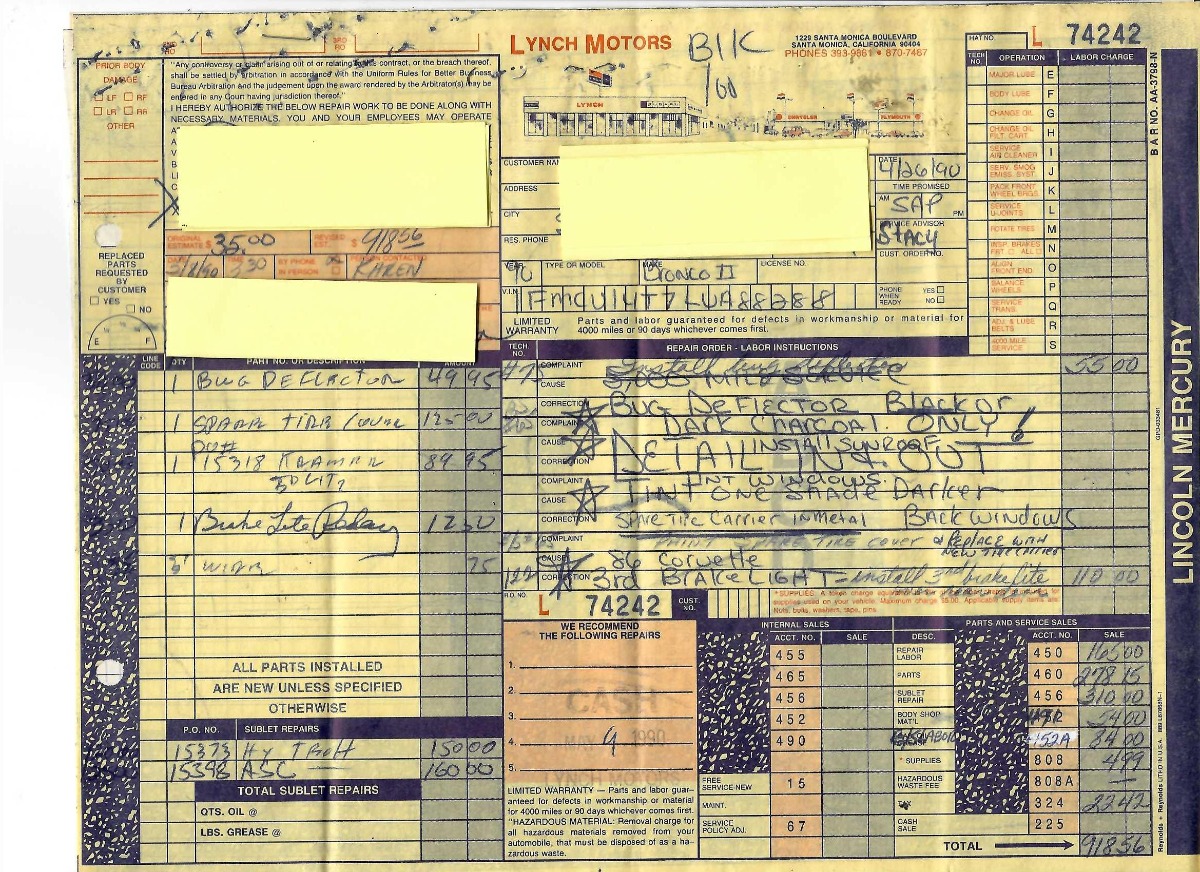 LYNCH MOTORS
BlK
1229 SANTA MONICA BOULEVARD
SANTA MONICA, CALIFORNIA 90404
PHONES 393-9861 • 870-7487
HAT NO.
L 74242
PRIOR BODY
DAMAGE
LF RF
LR RR
OTHER
"Any controversy or claim arising out of or relating to this contract, or the breach thereof,
shall be settled by arbitration in accordance with the Uniform Rules for Better Business
Bureau Arbitration and the judgement upon the award rendered by the Arbitrator(s) may be
entered in any Court having jurisdiction thereof."
I HEREBY AUTHORIZE THE BELOW REPAIR WORK TO BE DONE ALONG WITH
NECESSARY MATERIALS. YOU AND YOUR EMPLOYEES MAY OPERATE
LYNCH
CHRYSLER
PLYMOUTH
CUSTOMER NAM
ADDRESS
CITY
RES. PHONE
DATE
4/26/90
TIME PROMISED
AM SAP PM
SERVICE ADVISOR
STACY
CUST. ORDER NO.
ORIGINAL ESTIMATE $ 35.00
REVISED EST. $ 918 56
DATE 5/8/90
3:30
BY PHONE
IN PERSON
PERSON CONTACTED
KAREN
REPLACED
PARTS
REQUESTED
BY
CUSTOMER
YES
NO
E F
YEAR 90
TYPE OR MODEL
MAKE BRONCO II
LICENSE NO.
V.I.N. FmCU14T7LUA88288
PHONE
WHEN
READY
YES
NO
LIMITED
WARRANTY
Parts and labor guaranteed for defects in workmanship or material for
4000 miles or 90 days whichever comes first.
TECH NO.
OPERATION
LABOR CHARGE
MAJOR LUBE E
BODY LUBE F
CHANGE OIL G
CHANGE OIL FILT. CART. H
SERVICE AIR CLEANER I
SERV. SMOG EMISS. SYST. J
PACK FRONT WHEEL BRGS. K
SERVICE U-JOINTS L
ROTATE TIRES M
INSP. BRAKES N
ALIGN FRONT END O
BALANCE WHEELS P
SERVICE TRANS. Q
ADJ. & LUBE BELTS R
4000 MILE SERVICE S
BAR NO. AA-3798-N
LINCOLN MERCURY
LINE CODE
QTY
PART NO. OR DESCRIPTION
AMOUNT
1 BUG DEFLECTOR 49 95
1 SPARE TIRE COVER 125 00
PO#
1 15318 KRAMER 89 95
3D LITE
1 Brake Lite Relay 12 50
WIRE 75
ALL PARTS INSTALLED
ARE NEW UNLESS SPECIFIED
OTHERWISE
P.O. NO.
SUBLET REPAIRS
15373 Hy Tech 150 00
15398 ASC 160 00
TOTAL SUBLET REPAIRS
QTS. OIL @
LBS. GREASE @
TECH. NO.
REPAIR ORDER - LABOR INSTRUCTIONS
COMPLAINT
CAUSE
CORRECTION
Install bug deflector 55 00
BUG DEFLECTOR BLACK or
DARK CHARCOAL ONLY!
INSTALL SUNROOF
DETAIL IN & OUT
TINT WINDOWS.
TINT ONE SHADE DARKER
SPARE TIRE CARRIER IN METAL BACK WINDOWS
PAINT SPARE TIRE COVER & REPLACE WITH
86 CORVETTE
3rd BRAKE LIGHT - install 3rd brake lite 110 00
R.O. NO.
L 74242
CUST. NO.
WE RECOMMEND
THE FOLLOWING REPAIRS
1.
2.
3.
4.
5.
CASH
MAY 9 1990
LYNCH MOTORS
LIMITED WARRANTY — Parts and labor guar-
anteed for defects in workmanship or material
for 4000 miles or 90 days whichever comes first.
"HAZARDOUS MATERIAL: Removal charge for
all hazardous materials removed from your
automobile, that must be disposed of as a ha-
zardous waste.
INTERNAL SALES
ACCT. NO.
SALE
DESC.
PARTS AND SERVICE SALES
ACCT. NO.
SALE
455 REPAIR LABOR 450 165 00
465 PARTS 460 278 15
456 SUBLET REPAIR 456 310 00
452 BODY SHOP MAT'L 54 00
490 152A 84 00
* SUPPLIES 808 4 99
FREE SERVICE-NEW 15 HAZARDOUS WASTE FEE 808A —
MAINT. TAX 324 22 42
SERVICE POLICY ADJ. 67 CASH SALE 225
TOTAL 918 56